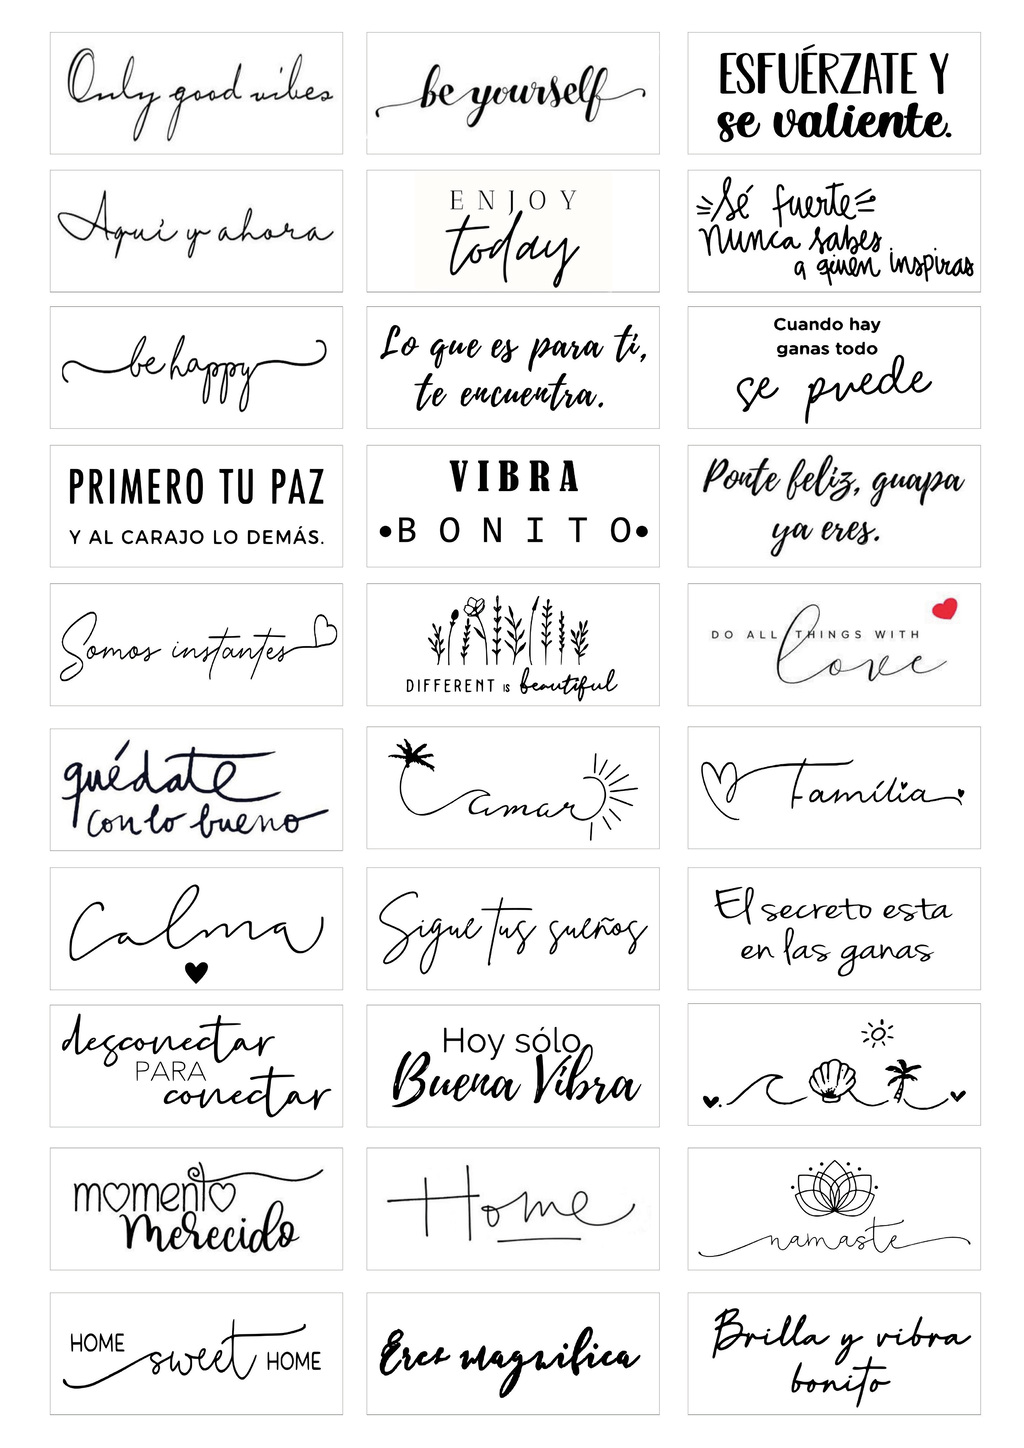 Only good vibes
be yourself
ESFUÉRZATE Y
se valiente.
Aquí y ahora
ENJOY
today
Sé fuerte
Nunca sabes
a quien inspiras
be happy
Lo que es para ti,
te encuentra.
Cuando hay
ganas todo
se puede
PRIMERO TU PAZ
Y AL CARAJO LO DEMÁS.
VIBRA
•BONITO•
Ponte feliz, guapa
ya eres.
Somos instantes
DIFFERENT IS beautiful
DO ALL THINGS WITH
love
quédate
con lo bueno
amar
Família
Calma
Sigue tus sueños
El secreto esta
en las ganas
desconectar
PARA
conectar
Hoy sólo
Buena Vibra
momento
Merecido
Home
namaste
HOME sweet HOME
Eres magnifica
Brilla y vibra
bonito